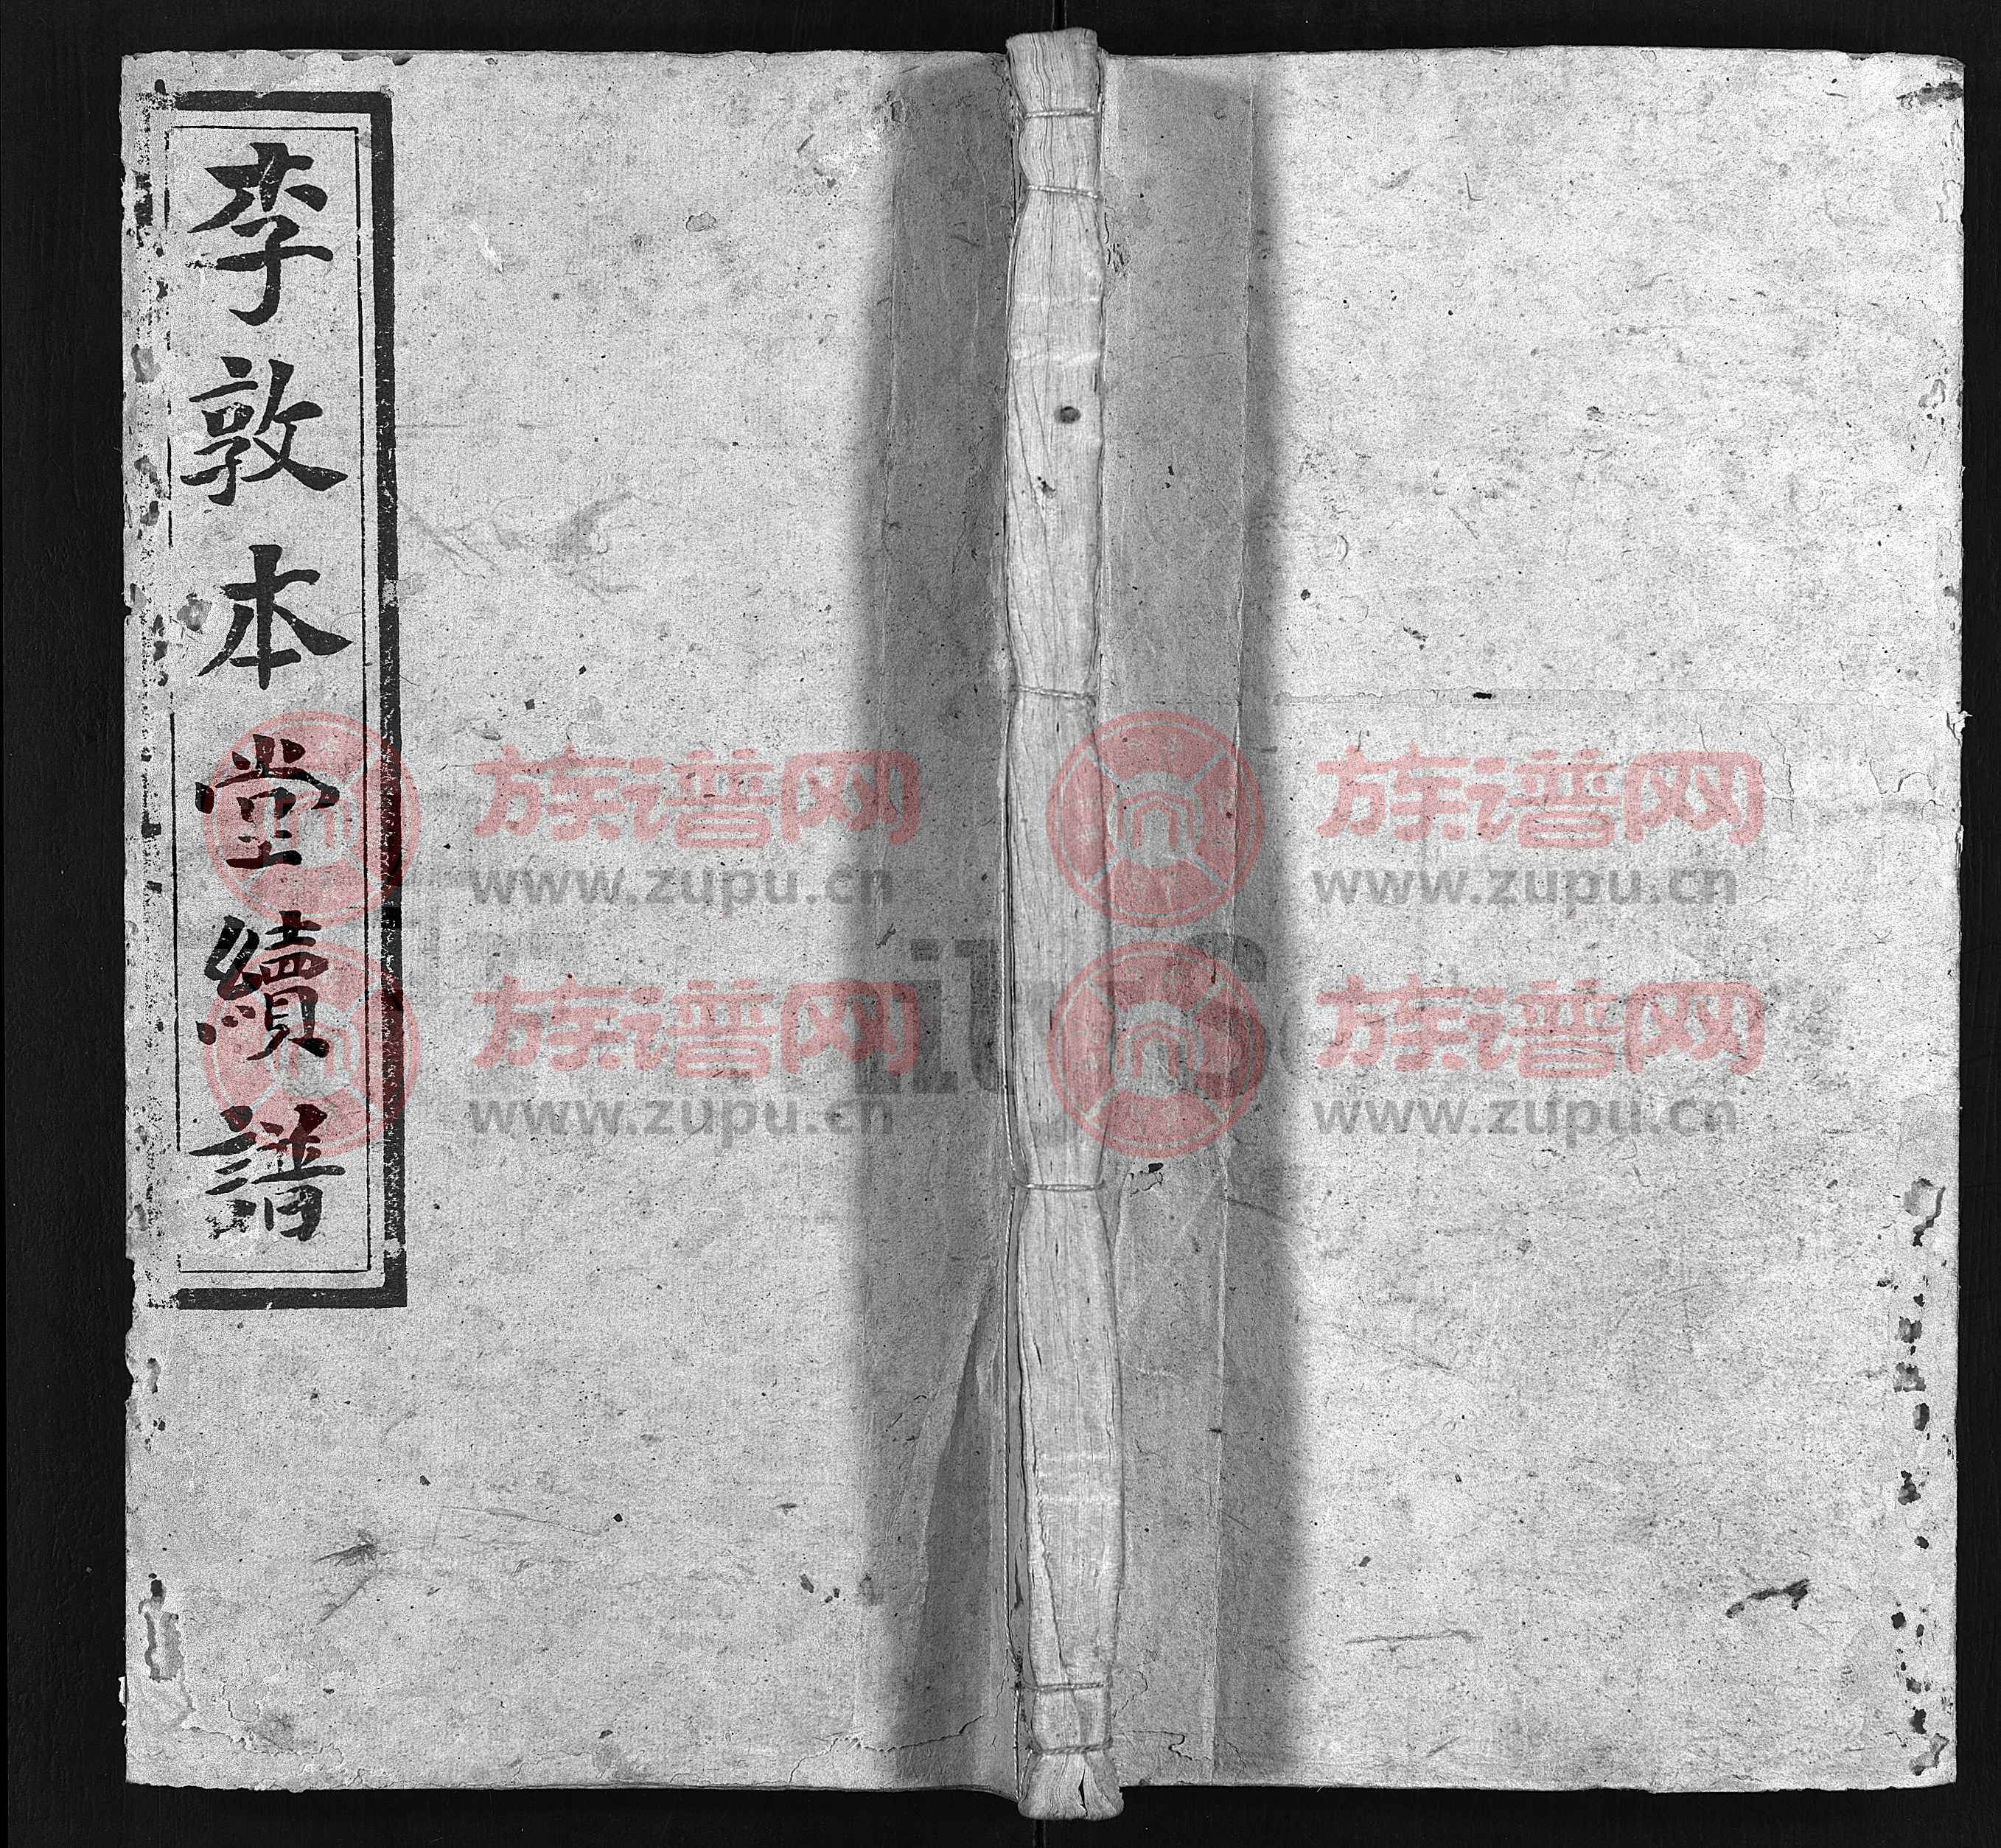 李敦本堂續譜
族谱网
www.zupu.cn
族谱网
www.zupu.cn
族谱网
www.zupu.cn
族谱网
www.zupu.cn